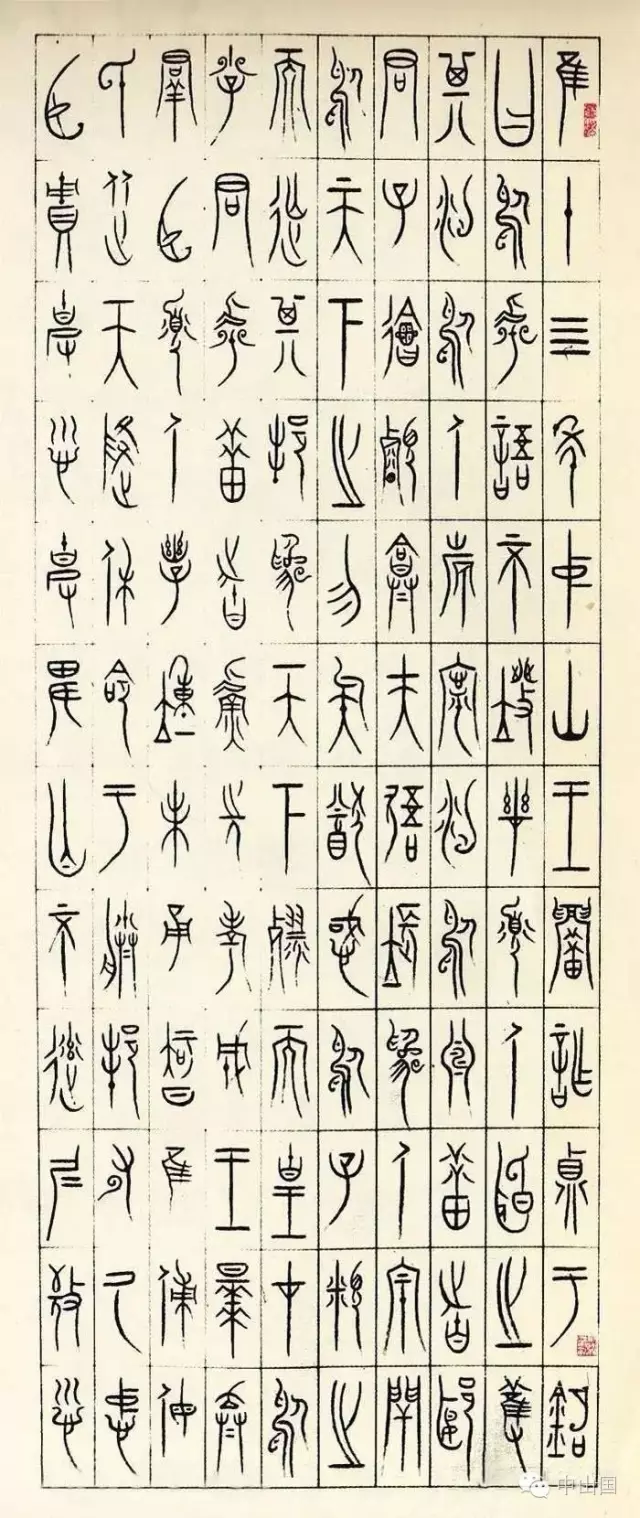 隹十四年中山王𰯼詐鼎于銘
曰於虖語不廢哉寡人聞之蒦
其汋於人施寧汋於淵昔者郾
君子噲叡弇夫悟長為人宗閈
於天下之勿矣猷惑於子之
而亡其邦為天下戮而皇才於
少君虖昔者吾先考成王早棄
群臣寡人幼童未甬智隹傅姆
氏從天降休命于朕邦有厥忠
臣賈克順克卑亡不率仁敬順
中山国